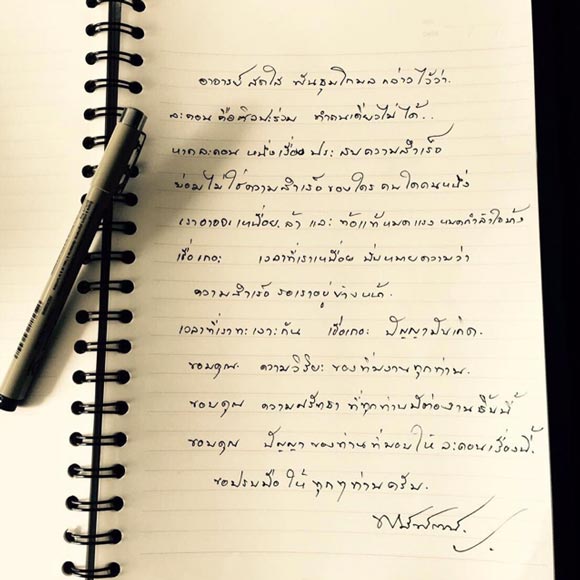 อาจารย์ สดใส พันธุมโกมล กล่าวไว้ว่า.
ละคอน คือศิลปะร่วม ทำคนเดียวไม่ได้..
หากละคอน หนึ่งเรื่อง ประสบความสำเร็จ
ย่อมไม่ใช่ความสำเร็จ ของใคร คนใดคนหนึ่ง
เราอาจจะเหนื่อย ล้า และ ท้อแท้หมดแรง หมดกำลังใจบ้าง
เชื่อเถอะ เวลาที่เราเหนื่อย นั่นหมายความว่า
ความสำเร็จ รอเราอยู่ข้างหน้า.
เวลาที่เราทะเลาะกัน เชื่อเถอะ ปัญญามันเกิด.
ขอบคุณ ความวิริยะ ของทีมงานทุกท่าน.
ขอบคุณ ความศรัทธา ที่ทุกท่านมีต่องานชิ้นนี้
ขอบคุณ ปัญญา ของท่าน ที่มอบให้ ละคอนเรื่องนี้.
ขอปรบมือ ให้ ทุกๆ ท่านครับ.